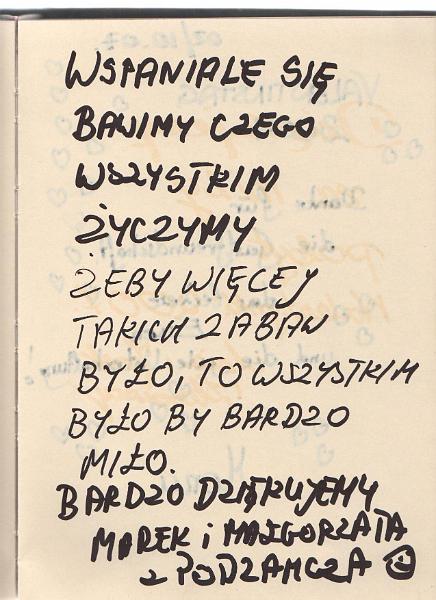 WSPANIALE SIĘ
BAWIMY CZEGO
WSZYSTKIM
ŻYCZYMY
ŻEBY WIĘCEJ
TAKICH ZABAW
BYŁO, TO WSZYSTKIM
BYŁO BY BARDZO
MIŁO.
BARDZO DZIĘKUJEMY
MAREK i MAŁGORZATA
z PODZAMCZA